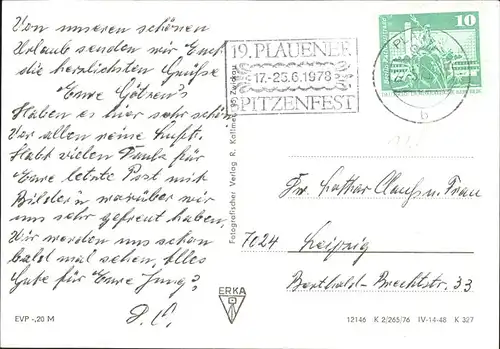 Von unseren schönen
Urlaub senden wir Euch
die herzlichsten Grüße
Eure Götzen's
Haben es hier sehr schön
Vor allen reine Luft.
Habt vielen Dank für
Eure letzte Post mit
Bildern worüber wir
uns sehr gefreut haben,
Wir werden uns schon
bald mal sehen, Alles
Gute für Eure Jung's,
19. PLAUENER
17.-25.6.1978
SPITZENFEST
10
b
Fotografischer Verlag R. Kallmer, 95 Zwickau
Fam. Lothar Clauß u. Frau
7024 Leipzig
Berthold-Brechtstr. 33
ERKA
EVP -,20 M
12146 K 2/265/76 IV-14-48 K 327